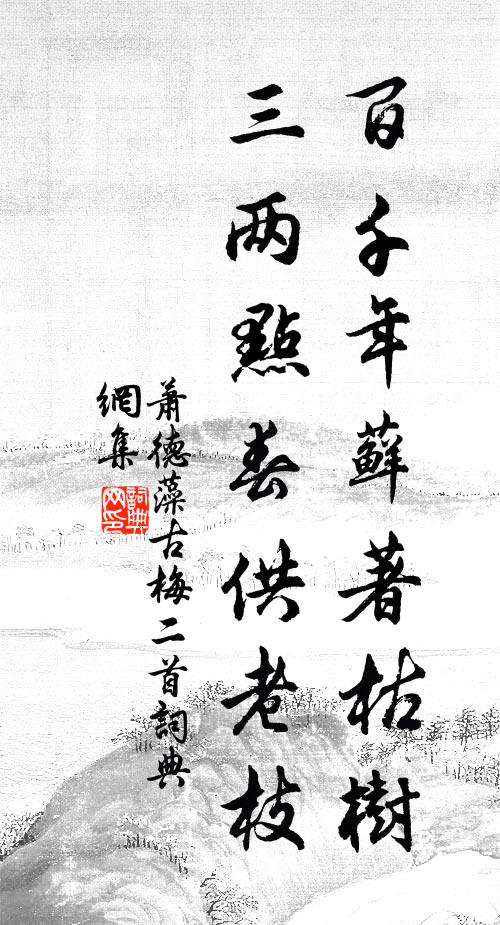 百千年蘚著枯樹
三两點春供老枝
蕭德藻古梅二首詞典
網集
詞典网印